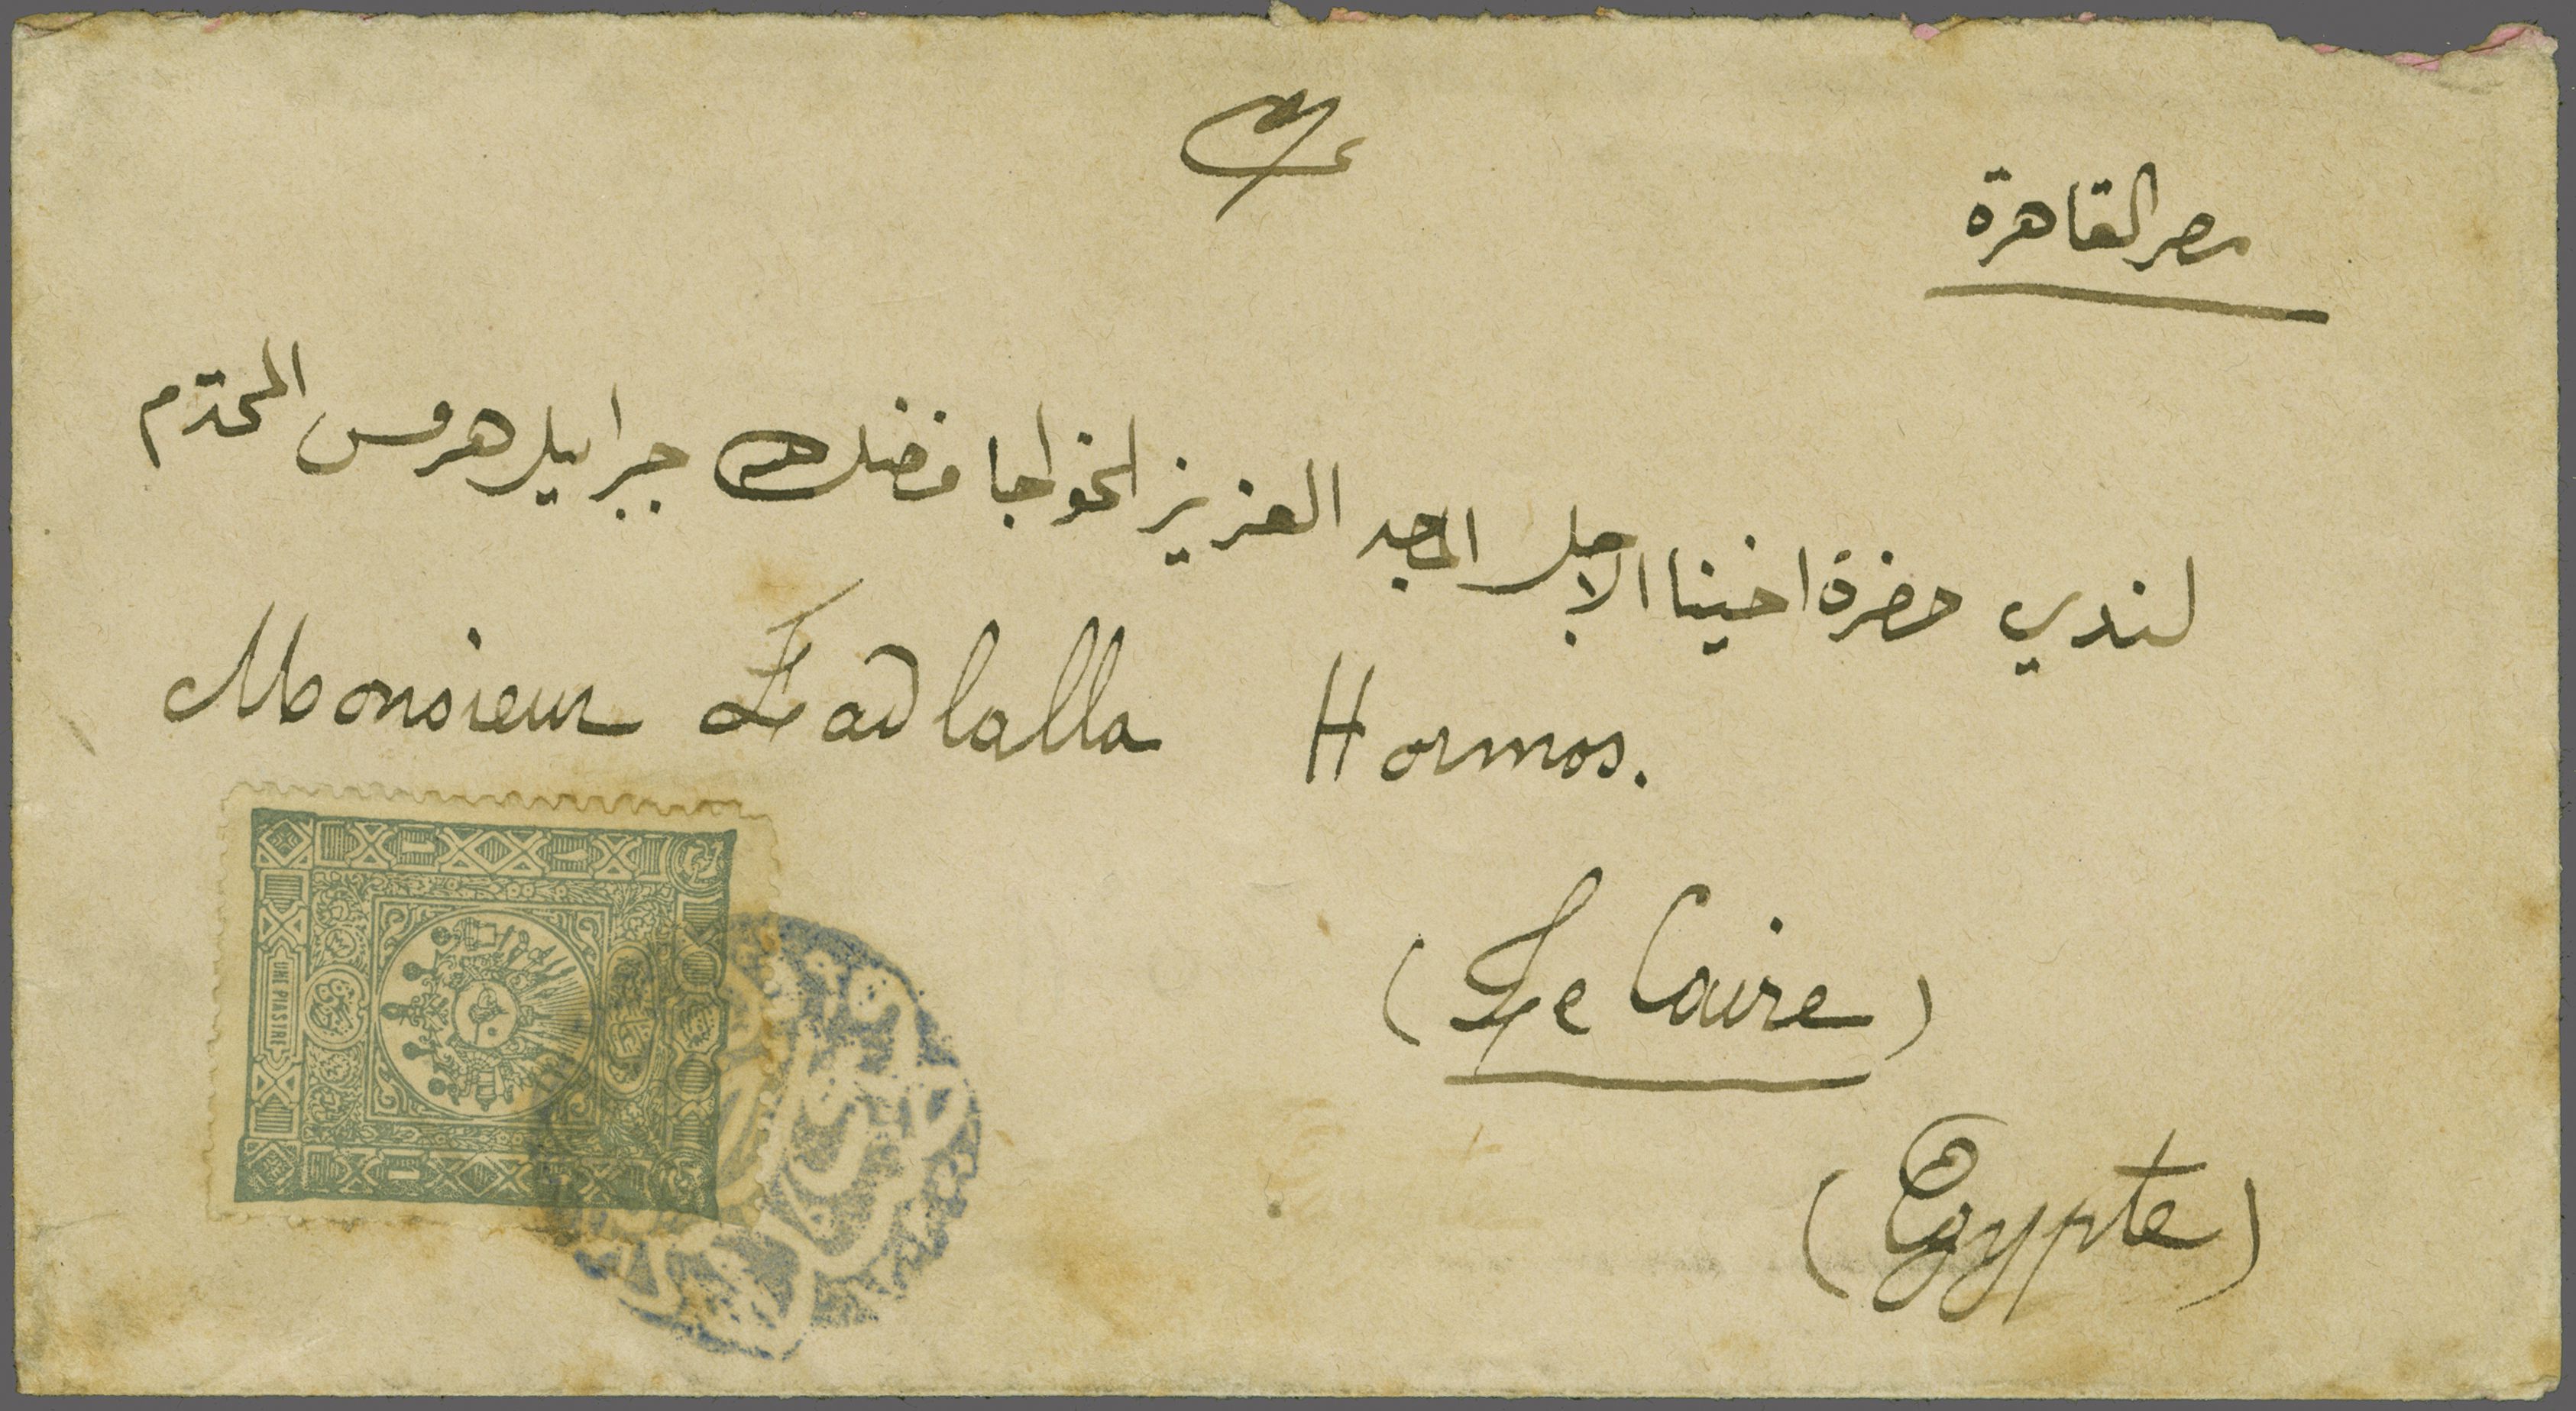 مصر القاهرة
لندي حضرة اخينا الاجل الماجد العزيز الخواجا فضل الله جبرايل هرمس المحترم
Monsieur Fadlalla Hormos.
(Le Caire)
(Egypte)
UNE PIASTRE